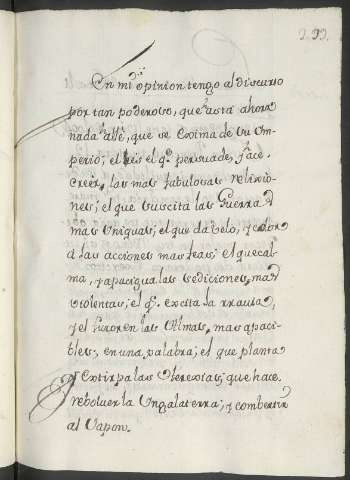 299.
En mi opinion tengo al discurso
por tan poderoso, que hasta ahora
nada hallè, que se exima de su Ym-
perio; el es el q.e persuade, y hace
creèr, las mas fabulosas relixio-
nes; el que suscita las Guerras
mas Yniquas; el que da velo, y color
â las acciones mas feas; el que cal-
ma, y apacigua las sediciones, mas
violentas; el q.e excita la rravia,
y el furor en las Almas, mas apaci-
bles, en una palabra; el que planta
y extirpa las Herexias; que hace
reboluer la Yngalaterra; y combertir
al Xapon.